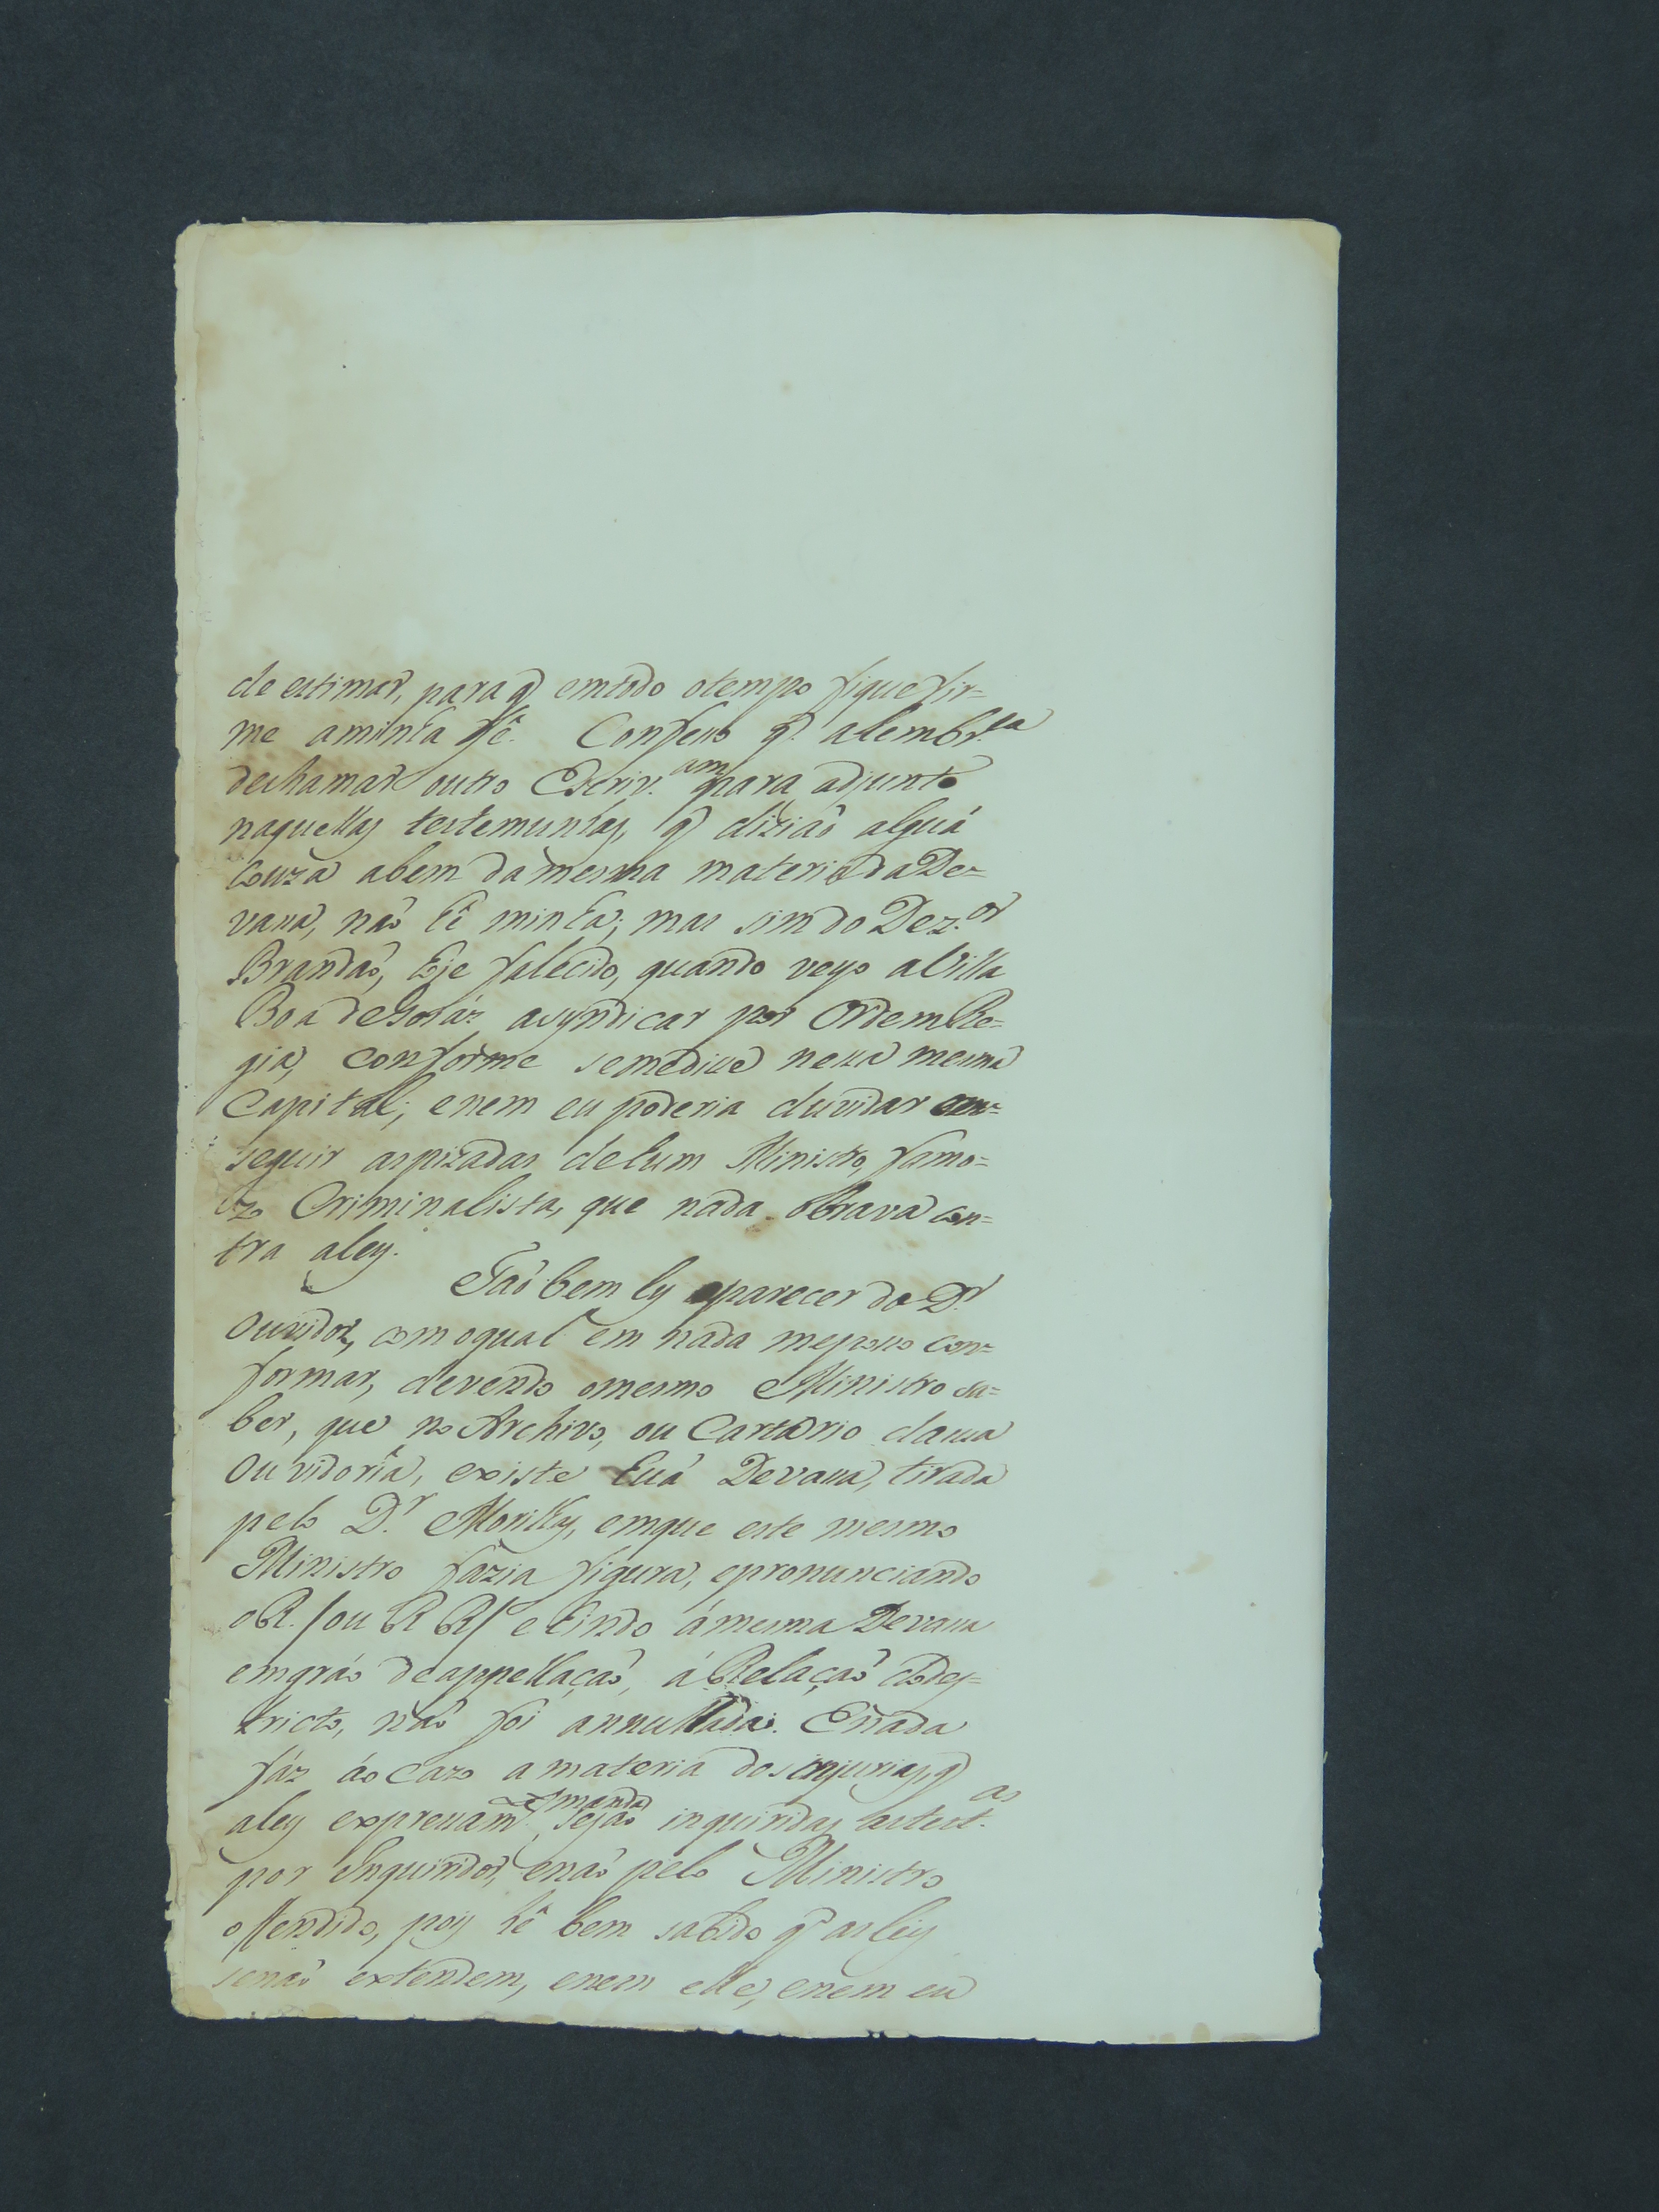 de estimar, para q̃ emtodo otempo fiquefir=
me aminha fê. Confeso q̃. alembr.ca
dechamar outro Escriv.am para adjunto
naquellas testemunhas, q̃ diziaõ alguã
couza abem damesma materia daDe=
vassa, naõ hê minha; mas simdo Dez.or
Brandaõ, hoje falecido, quando veyo aVilla
Boa deGoyáz asyndicar por OrdemRe=
gia, conforme semedisse nessa mesma
Capital; enem eu poderia duvidar
seguir aspizadas dehum Ministro, famo=
zo Criminalista, que nada obrava con=
tra aley.
Taõbem ly oparecer do D.r
Ouvidor, comoqual em nada meposso con=
formar, devendo omesmo Ministro sa=
ber, que no Archivo, ou Cartorio dasua
Ouvidoria, existe huã Devassa, tirada
pelo D.r Morilhy, emque este mesmo
Ministro fazia figura, epronunciando
oR. /ou RR/ e hindo ámesma Devassa
emgráo deappellaçaõ, áRelaçaõ dodes=
tricto, naõ foi annullada. Enada
fáz áo cazo amateria dos injurias, q̃
aley expressam.e manda sejaõ inquiridas astest.as
por Inquiridor, enaõ pelo Ministro
offendido, pois hê bem sabido q̃ asleys
senaõ extendem, enem elle, enem eu